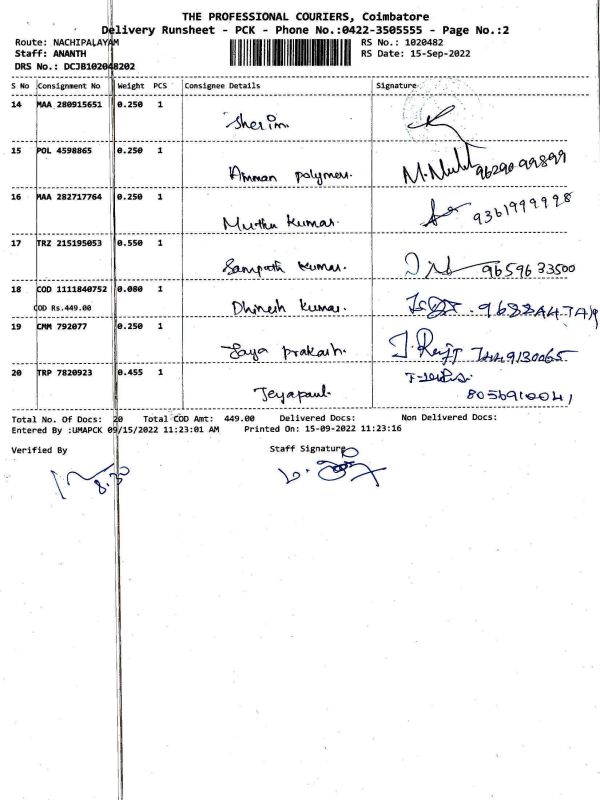 THE PROFESSIONAL COURIERS, Coimbatore
Delivery Runsheet - PCK - Phone No.:0422-3505555 - Page No.:2
Route: NACHIPALAYAM RS No.: 1020482
Staff: ANANTH RS Date: 15-Sep-2022
DRS No.: DCJB102048202
S No Consignment No Weight PCS Consignee Details Signature
14 MAA 280915651 0.250 1
Sherin.
15 POL 4598865 0.250 1
Amman polymers. 9629099899
16 MAA 282717764 0.250 1
Muthu kumar. 9361999998
17 TRZ 215195053 0.550 1
Sampath kumar. 9659633500
18 COD 1111840752 0.080 1
COD Rs.449.00 Dhinesh kumar.
19 CMM 792077 0.250 1
Jaya prakash. 7449130065
20 TRP 7820923 0.455 1
Jeyapaul. 8056910041
Total No. Of Docs: 20 Total COD Amt: 449.00 Delivered Docs: Non Delivered Docs:
Entered By :UMAPCK 09/15/2022 11:23:01 AM Printed On: 15-09-2022 11:23:16
Verified By Staff Signature
8.30